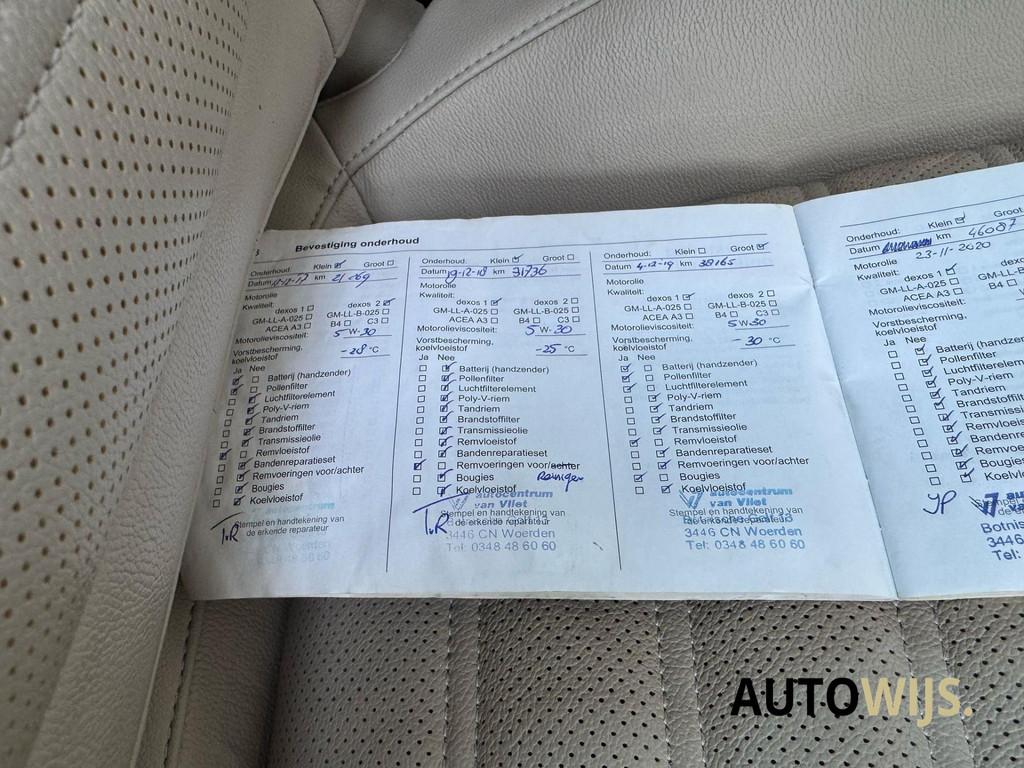 Bevestiging onderhoud
Onderhoud: Klein Groot
Datum km 21.169
Motorolie
Kwaliteit: dexos 1 dexos 2
GM-LL-A-025 GM-LL-B-025
ACEA A3 B4 C3
Motorolieviscositeit: 5W-30
Vorstbescherming,
koelvloeistof -28 °C
Ja Nee
Batterij (handzender)
Pollenfilter
Luchtfilterelement
Poly-V-riem
Tandriem
Brandstoffilter
Transmissieolie
Remvloeistof
Bandenreparatieset
Remvoeringen voor/achter
Bougies
Koelvloeistof
Stempel en handtekening van
de erkende reparateur
TvR
0348 48 60 60
Onderhoud: Klein Groot
Datum 19-12-18 km 31736
Motorolie
Kwaliteit: dexos 1 dexos 2
GM-LL-A-025 GM-LL-B-025
ACEA A3 B4 C3
Motorolieviscositeit: 5W-30
Vorstbescherming,
koelvloeistof -25 °C
Ja Nee
Batterij (handzender)
Pollenfilter
Luchtfilterelement
Poly-V-riem
Tandriem
Brandstoffilter
Transmissieolie
Remvloeistof
Bandenreparatieset
Remvoeringen voor/achter
Bougies Reinigen
Koelvloeistof
autocentrum
van Vliet
Stempel en handtekening van
de erkende reparateur
TvR
3446 CN Woerden
Tel: 0348 48 60 60
Onderhoud: Klein Groot
Datum 4-12-19 km 38165
Motorolie
Kwaliteit: dexos 1 dexos 2
GM-LL-A-025 GM-LL-B-025
ACEA A3 B4 C3
Motorolieviscositeit: 5W30
Vorstbescherming,
koelvloeistof -30 °C
Ja Nee
Batterij (handzender)
Pollenfilter
Luchtfilterelement
Poly-V-riem
Tandriem
Brandstoffilter
Transmissieolie
Remvloeistof
Bandenreparatieset
Remvoeringen voor/achter
Bougies
Koelvloeistof
autocentrum
van Vliet
Stempel en handtekening van
de erkende reparateur
3446 CN Woerden
Tel: 0348 48 60 60
Onderhoud: Klein Groot
Datum km 46087
23-11-2020
Motorolie
Kwaliteit:
dexos 1
GM-LL-A-025 GM-LL
ACEA A3 B4
Motorolieviscositeit:
Vorstbescherming,
koelvloeistof
Ja Nee
Batterij (handzen
Pollenfilter
Luchtfilterelem
Poly-V-riem
Tandriem
Brandstoffilte
Transmissie
Remvloeis
Bandenre
Remvoeri
Bougies
Koelvloe
JP
Botnis
3446
Tel:
AUTOWIJS.